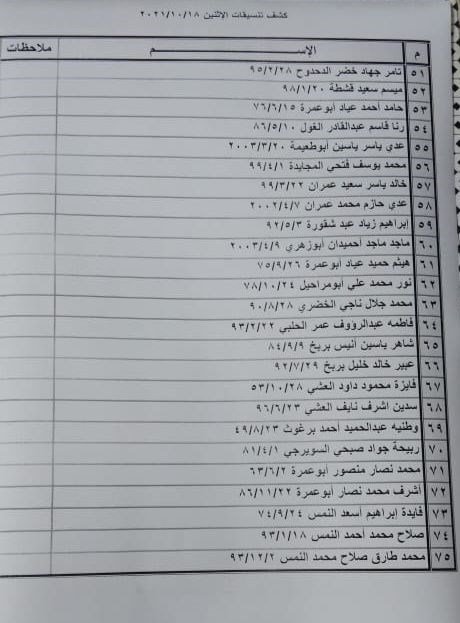 كشف تنسيقات الإثنين ٢٠٢١/١٠/١٨
م الإســـــــــــــــــــــــــم ملاحظات
٥١ تامر جهاد خضر الدحدوح ٩٥/٢/٢٨
٥٢ ميسم سعيد قشطة ٩٨/١/٢٠
٥٣ حامد أحمد عياد أبوعمرة ٧٦/٦/١٥
٥٤ رنا قاسم عبدالقادر الغول ٨٦/٥/١٠
٥٥ عدي ياسر ياسين أبوطعيمة ٢٠٠٣/٣/٢٠
٥٦ محمد يوسف فتحي المجايدة ٩٩/٤/١
٥٧ خالد ياسر سعيد عمران ٩٩/٣/٢٢
٥٨ عدي حازم محمد عمران ٢٠٠٢/٤/٧
٥٩ إبراهيم زياد عبد شقورة ٩٢/٥/٣
٦٠ ماجد ماجد أحميدان أبوزهري ٢٠٠٣/٤/٩
٦١ هيثم حميد عياد أبوعمرة ٧٥/٩/٢٦
٦٢ نور محمد علي أبومراحيل ٧٨/١٠/٢٤
٦٣ محمد جلال ناجي الخضري ٩٠/٨/٢٨
٦٤ فاطمه عبدالرؤوف عمر الحلبي ٩٣/٢/٢٢
٦٥ شاهر ياسين أنيس بربخ ٨٤/٩/٩
٦٦ عبير خالد خليل بربخ ٩٢/٧/٢٩
٦٧ فايزة محمود داود العشي ٥٣/١٠/٢٨
٦٨ سدين اشرف نايف العشي ٩٦/٦/٢٣
٦٩ وطنيه عبدالحميد أحمد برغوث ٤٩/٨/٢٣
٧٠ ربيحة جواد صبحي السويرجي ٨١/٤/١
٧١ محمد نصار منصور أبوعمرة ٦٣/٦/٢
٧٢ أشرف محمد نصار أبوعمرة ٨٦/١١/٢٢
٧٣ فايدة إبراهيم أسعد النمس ٧٤/٩/٢٤
٧٤ صلاح محمد أحمد النمس ٩٣/١/١٨
٧٥ محمد طارق صلاح محمد النمس ٩٣/١٢/٢